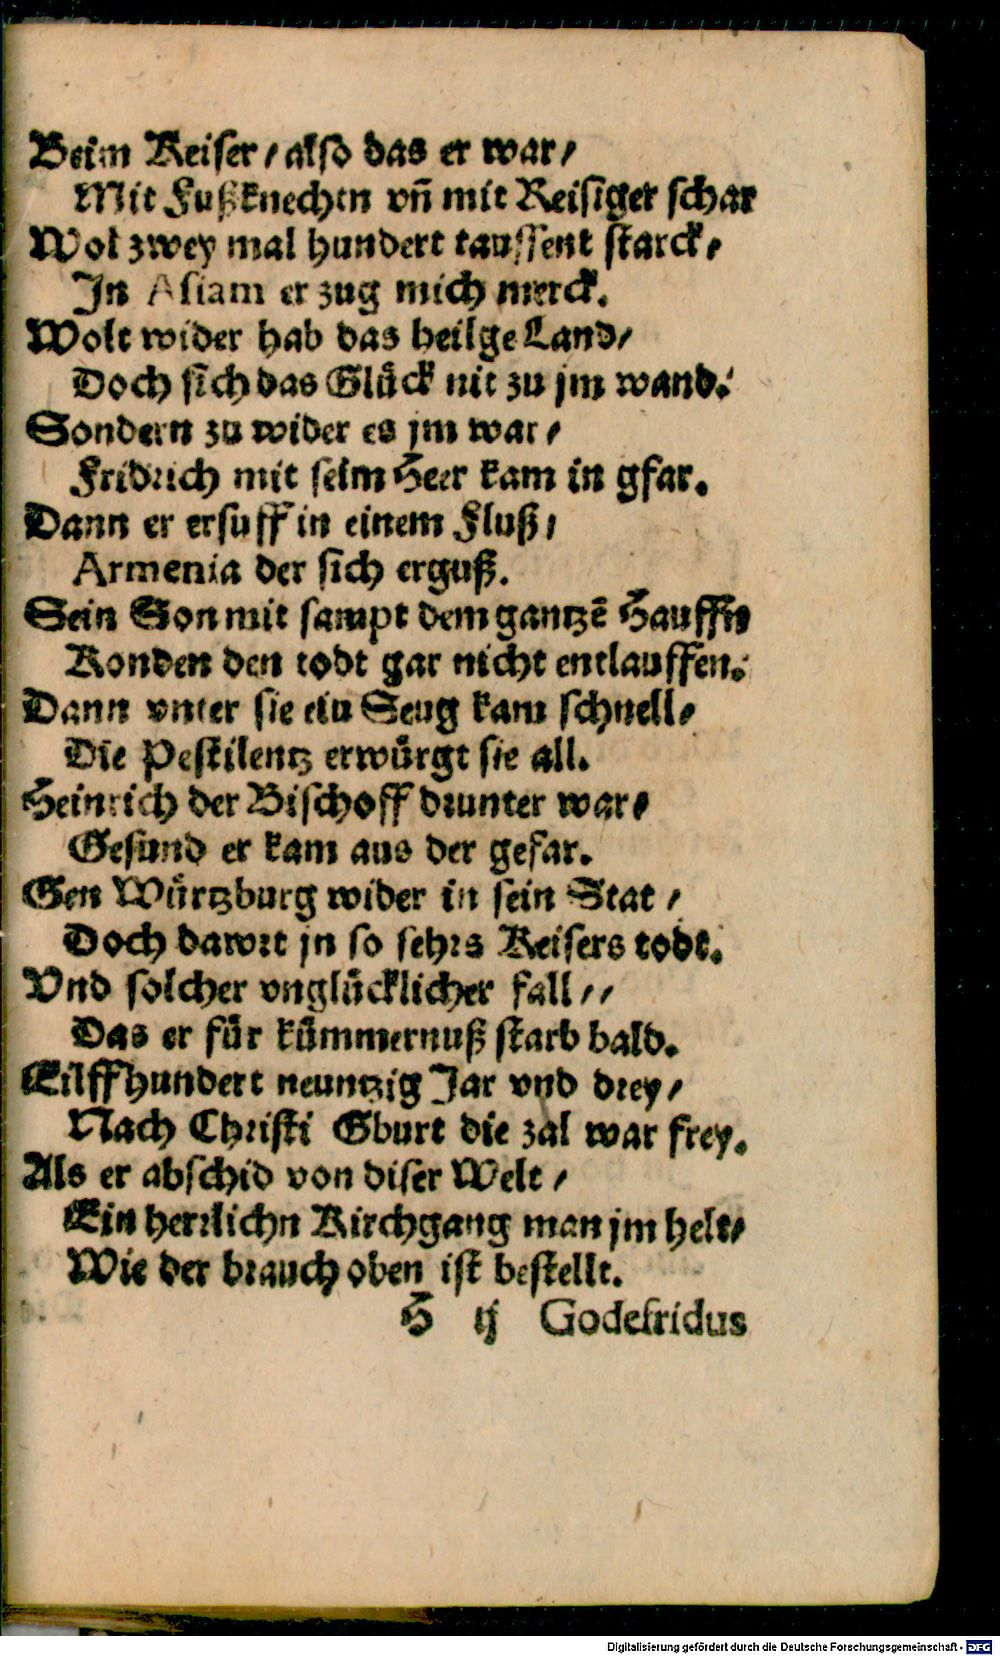 Beim Keiser / also das er war /
Mit Fußknechtn vñ mit Reisiger schar
Wol zwey mal hundert taussent starck /
In Asiam er zug mich merck.
Wolt wider hab das heilge Land /
Doch sich das Glück nit zu jm wand.
Sondern zu wider es jm war /
Fridrich mit seim Heer kam in gfar.
Dann er ersuff in einem Fluß /
Armenia der sich erguß.
Sein Son mit sampt dem gantzē Hauffn
Konden den todt gar nicht entlauffen.
Dann vnter sie ein Seug kam schnell /
Die Pestilentz erwürgt sie all.
Heinrich der Bischoff drunter war /
Gesund er kam aus der gefar.
Gen Würtzburg wider in sein Stat /
Doch dawrt jn so sehrs Keisers todt.
Vnd solcher vnglücklicher fall / /
Das er für kümmernuß starb bald.
Eilffhundert neuntzig Jar vnd drey /
Nach Christi Gburt die zal war frey.
Als er abschid von diser Welt /
Ein herrlichn Kirchgang man jm helt /
Wie der brauch oben ist bestellt.
H ij Godefridus
Digitalisierung gefördert durch die Deutsche Forschungsgemeinschaft - DFG